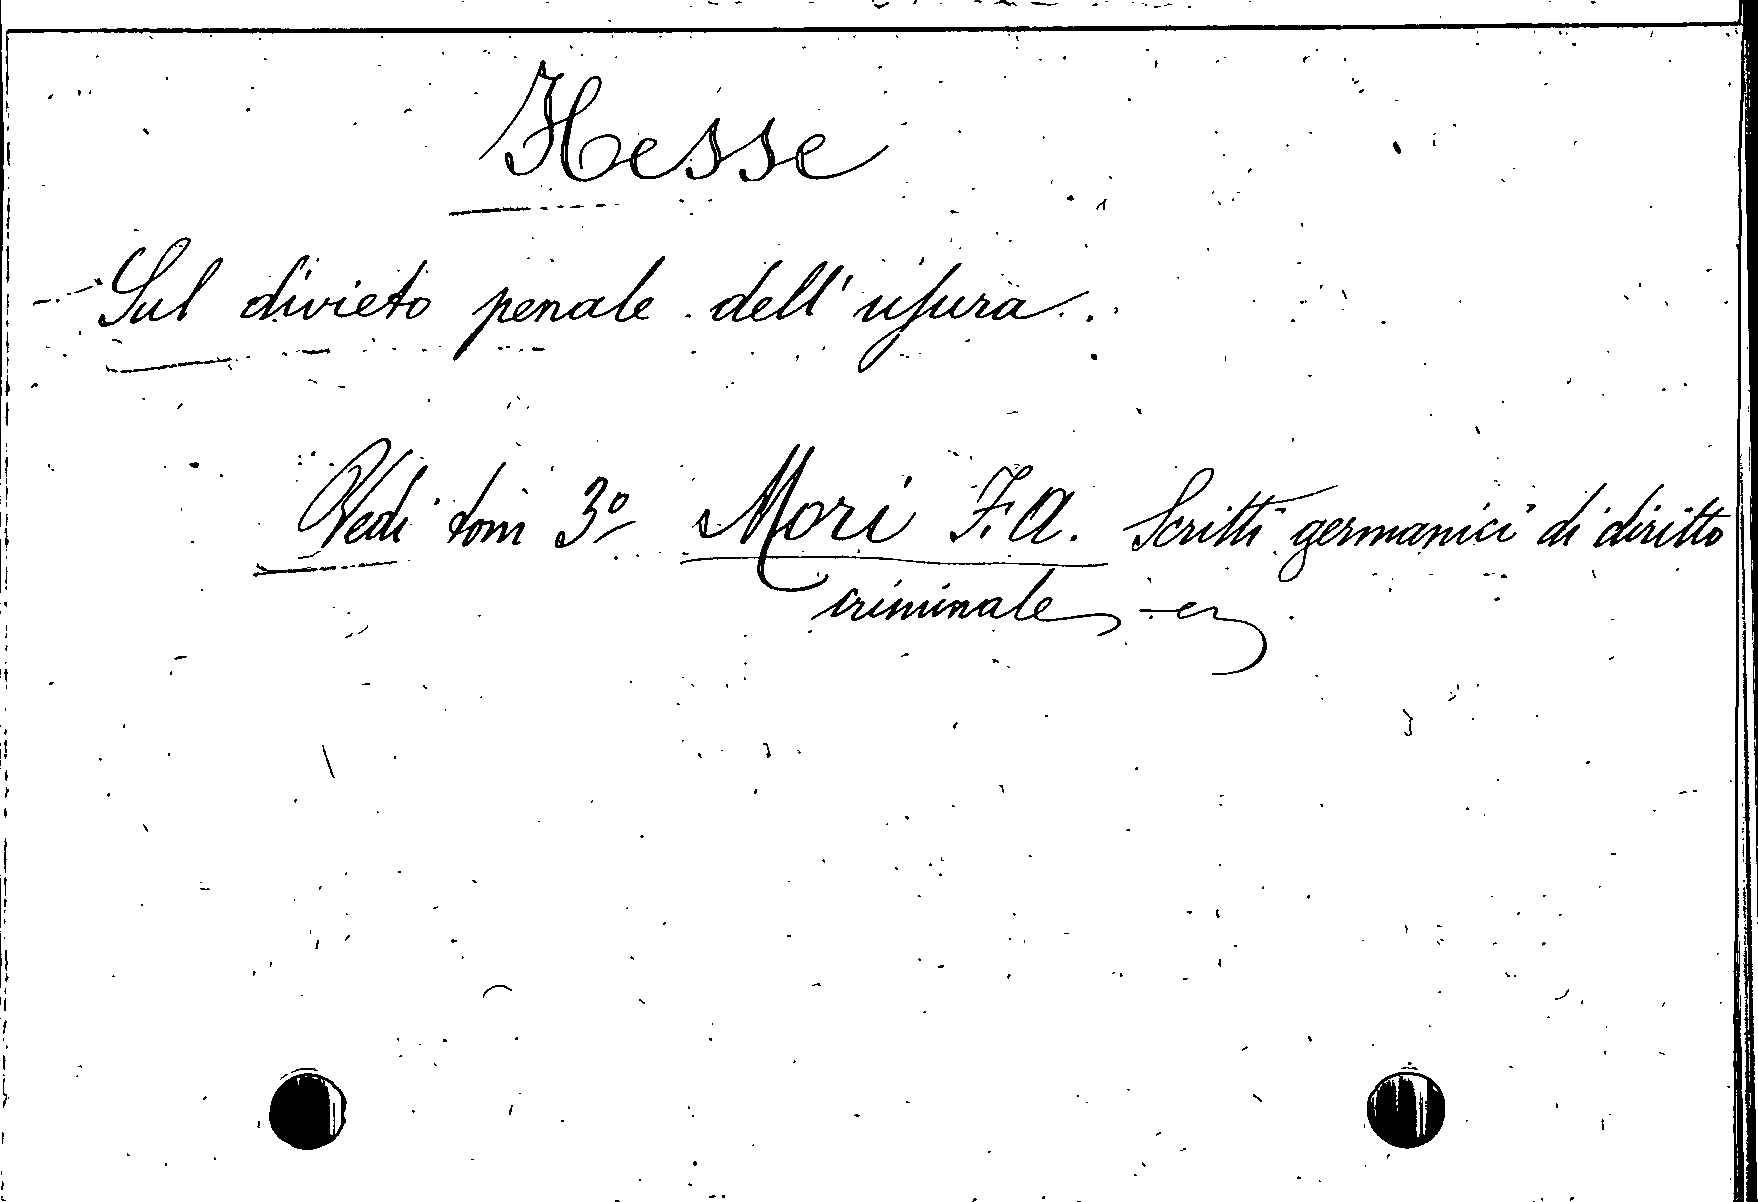 Hesse
Sul divieto penale dell'usura.
Vedi tom 3º Mori F. A. Scritti germanici di diritto
criminale